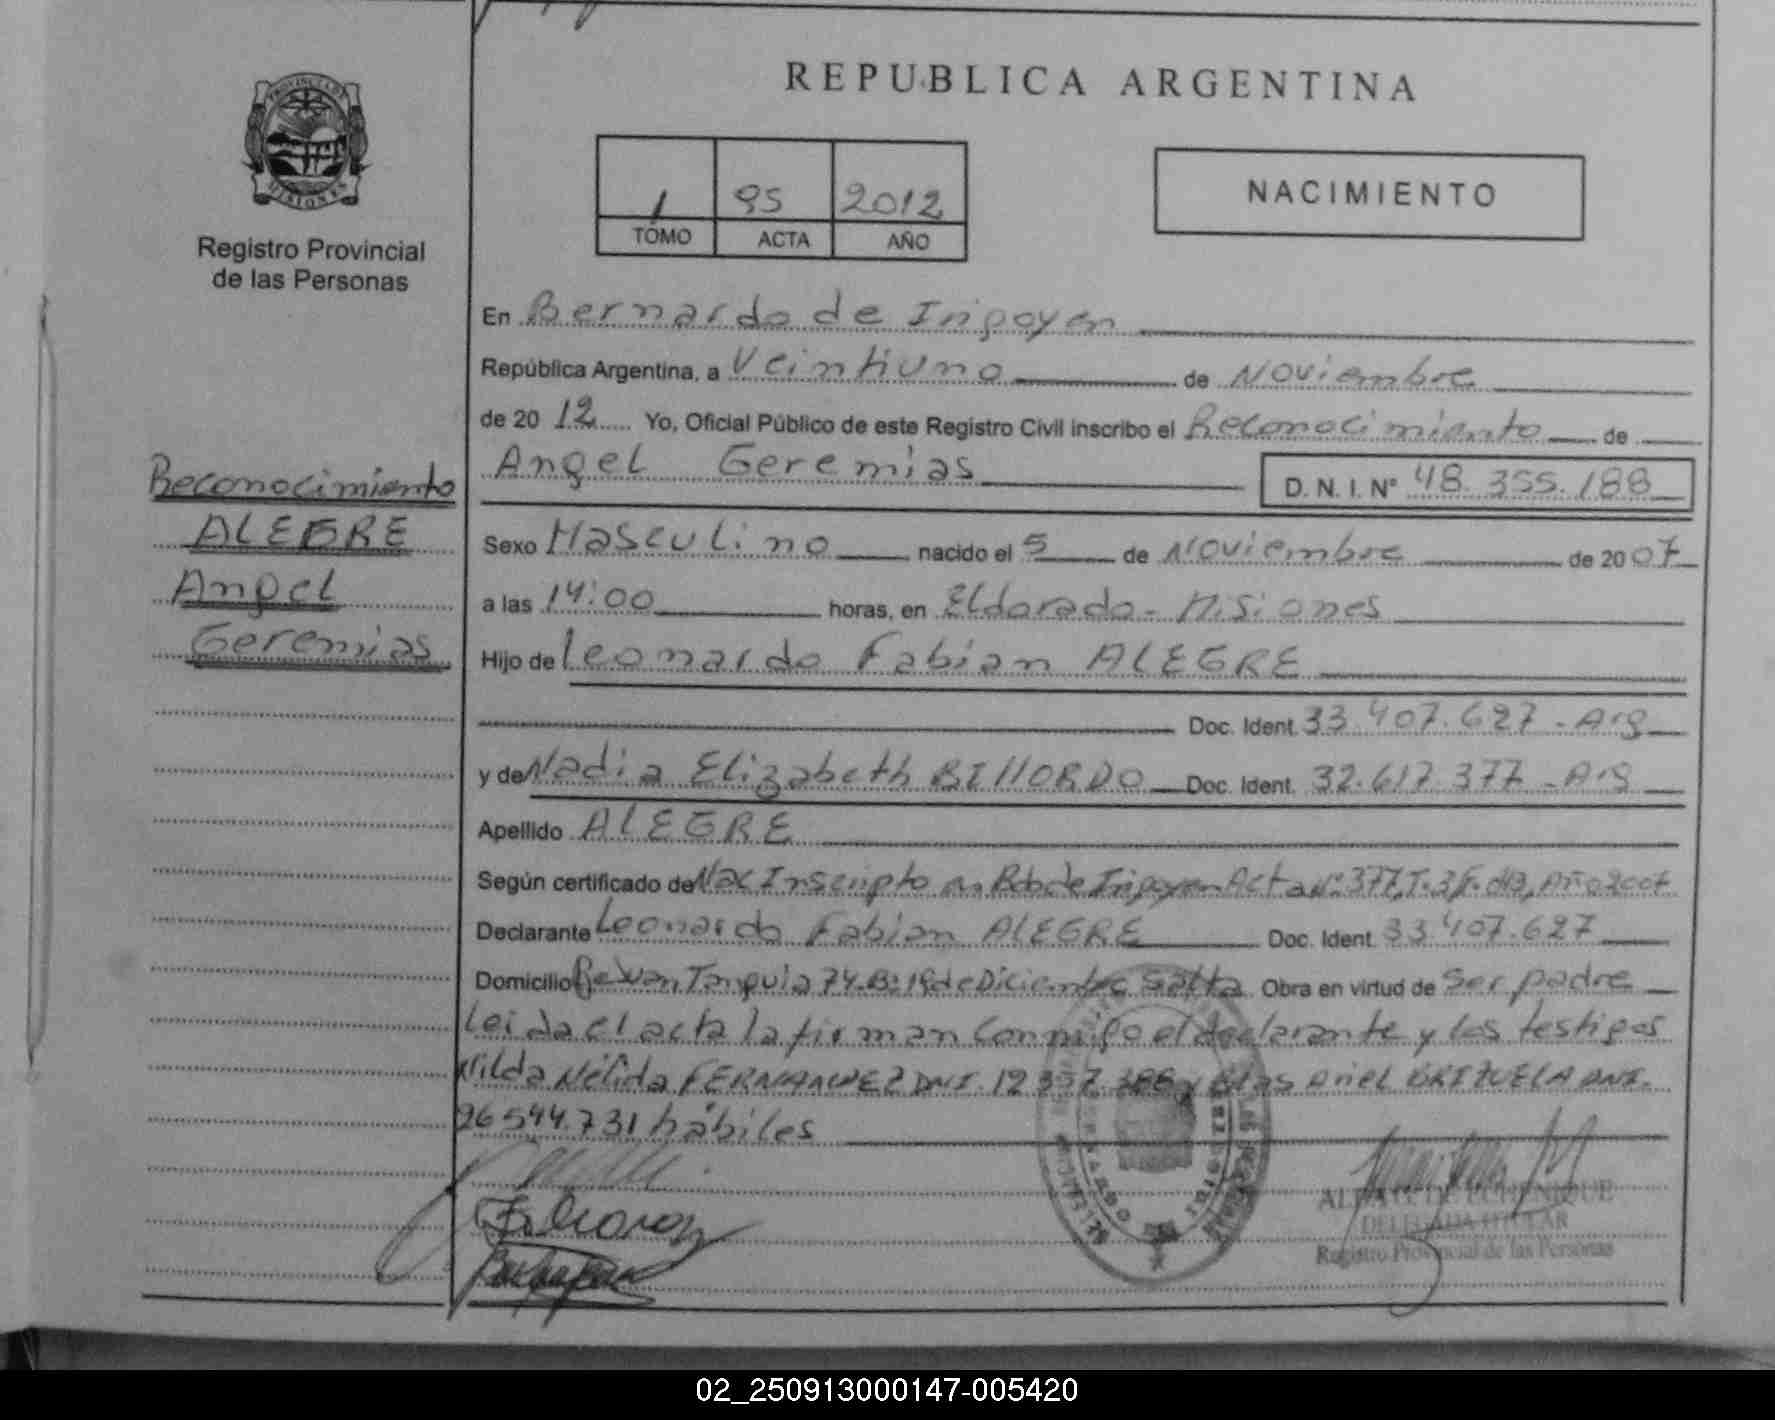 REPUBLICA ARGENTINA
PROVINCIA DE
MISIONES
Registro Provincial
de las Personas
1 95 2012
TOMO ACTA AÑO
NACIMIENTO
En Bernardo de Irigoyen
República Argentina, a Veintiuno de Noviembre
de 20 12 Yo, Oficial Público de este Registro Civil inscribo el Reconocimiento de
Angel Geremias D. N. I. N° 48.355.188
Reconocimiento
ALEGRE
Angel
Geremias
Sexo Masculino nacido el 5 de Noviembre de 20 07
a las 14:00 horas, en Eldorado - Misiones
Hijo de Leonardo Fabian ALEGRE
Doc. Ident. 33.407.627 - Arg
y de Nadia Elizabeth BILLORDO Doc. Ident. 32.617.377 - Arg
Apellido ALEGRE
Según certificado de Nac Inscripto en Bdo de Irigoyen Acta N° 377, T. 3, F. Año 2007
Declarante Leonardo Fabian ALEGRE Doc. Ident. 33.407.627
Domicilio 74 B° 19 de Diciembre Obra en virtud de Ser padre
Leida el acta la firman conmigo el declarante y los testigos
Nélida FERNANDEZ DNI. 12 357 y Blas Ariel BRIZUELA DNI.
26 544.731 hábiles
DELEGADA TITULAR
Registro Provincial de las Personas
02_250913000147-005420